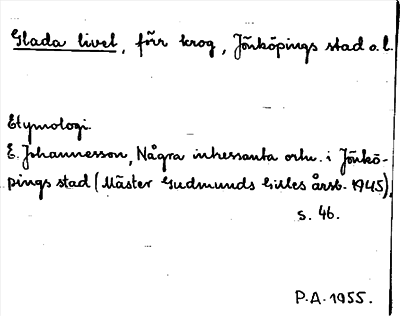 Glada livet, förr krog, Jönköpings stad o.l.
Etymologi.
E. Johannesson, Några intressanta ortn. i Jönkö-
pings stad (Mäster Gudmunds Gilles årsb. 1945),
s. 46.
P.A. 1955.